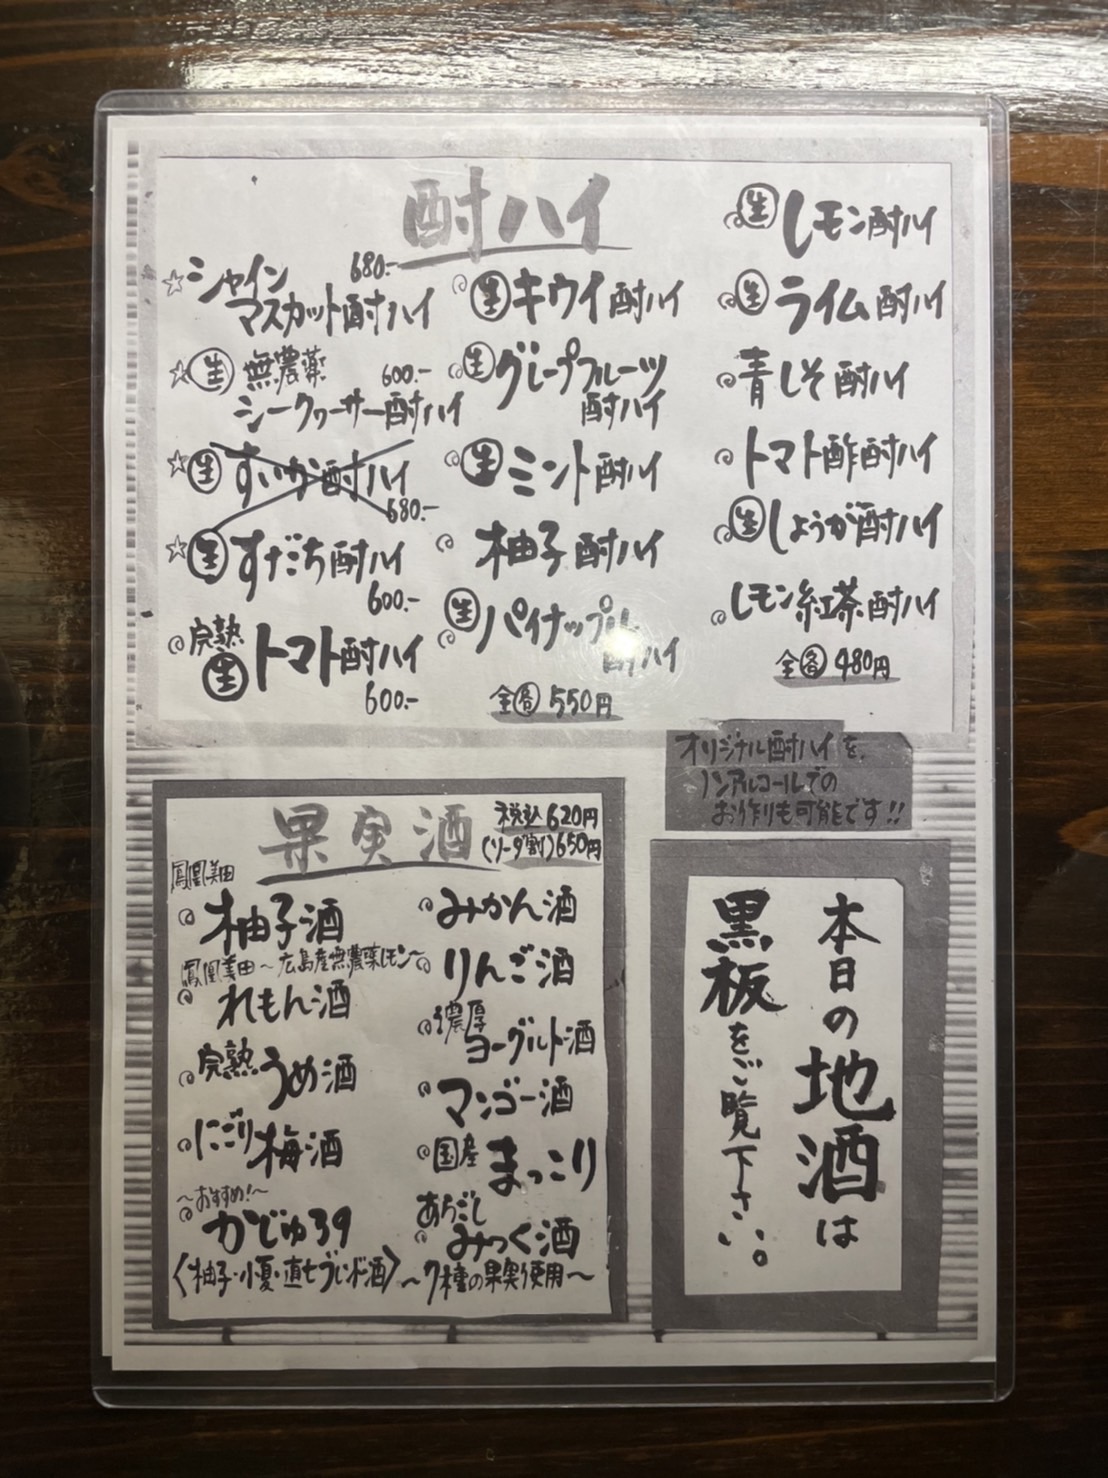 酎ハイ
☆シャイン 680.-
マスカット酎ハイ
☆生 無農薬 600.-
シークヮーサー酎ハイ
☆生 すいか酎ハイ
680.-
☆生 すだち酎ハイ
600.-
完熟
生 トマト酎ハイ
600.-
生 キウイ酎ハイ
生 グレープフルーツ
酎ハイ
生 ミント酎ハイ
柚子酎ハイ
生 パイナップル
酎ハイ
全各 550円
生 レモン酎ハイ
生 ライム酎ハイ
青しそ酎ハイ
トマト酢酎ハイ
生 しょうが酎ハイ
レモン紅茶酎ハイ
全各 480円
オリジナル酎ハイを、
ノンアルコールでの
お作りも可能です!!
果実酒
税込620円
(ソーダ割)650円
鳳凰美田
柚子酒
鳳凰美田～広島産無農薬レモン～
れもん酒
完熟うめ酒
にごり梅酒
～おすすめ!～
かじゅ39
〈柚子・小夏・直七ブレンド酒〉
みかん酒
りんご酒
濃厚
ヨーグルト酒
マンゴー酒
国産まっこり
あらごし
みっく酒
～7種の果実使用～
本日の地酒は
黒板をご覧下さい。